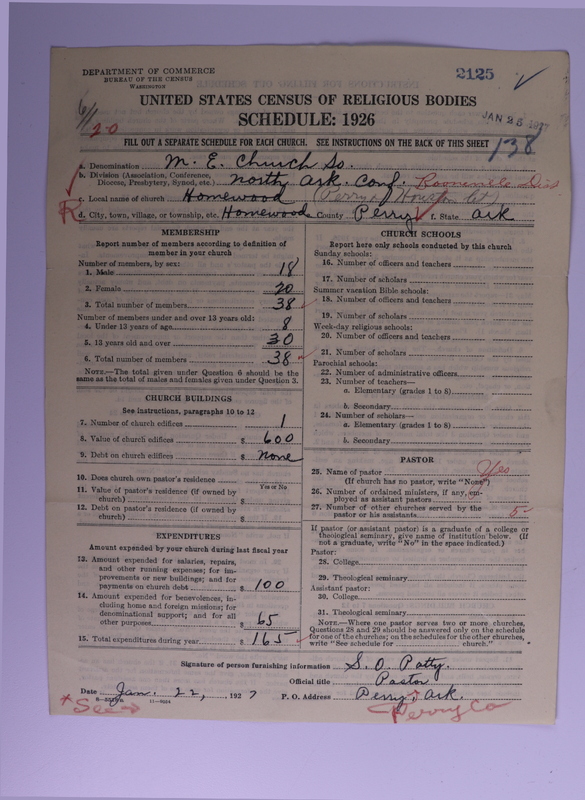 DEPARTMENT OF COMMERCE
BUREAU OF THE CENSUS
WASHINGTON
2125
UNITED STATES CENSUS OF RELIGIOUS BODIES
SCHEDULE: 1926
JAN 25 1927
6/1
20
138
FILL OUT A SEPARATE SCHEDULE FOR EACH CHURCH. SEE INSTRUCTIONS ON THE BACK OF THIS SHEET
a. Denomination M. E. Church So.
b. Division (Association, Conference, Diocese, Presbytery, Synod, etc.) North Ark. Conf. Booneville Dist
c. Local name of church Homewood (Perry & Houston Ct)
R
d. City, town, village, or township, etc. Homewood County Perry f. State Ark
MEMBERSHIP
Report number of members according to definition of
member in your church
Number of members, by sex:
1. Male 18
2. Female 20
3. Total number of members 38
Number of members under and over 13 years old:
4. Under 13 years of age 8
5. 13 years old and over 30
6. Total number of members 38
NOTE.—The total given under Question 6 should be the
same as the total of males and females given under Question 3.
CHURCH BUILDINGS
See instructions, paragraphs 10 to 12
7. Number of church edifices 1
8. Value of church edifices $ 600
9. Debt on church edifices $ none
10. Does church own pastor's residence
Yes or No
11. Value of pastor's residence (if owned by
church) $
12. Debt on pastor's residence (if owned by
church) $
EXPENDITURES
Amount expended by your church during last fiscal year
13. Amount expended for salaries, repairs,
and other running expenses; for im-
provements or new buildings; and for
payments on church debt $ 100
14. Amount expended for benevolences, in-
cluding home and foreign missions; for
denominational support; and for all
other purposes $ 65
15. Total expenditures during year $ 165
CHURCH SCHOOLS
Report here only schools conducted by this church
Sunday schools:
16. Number of officers and teachers
17. Number of scholars
Summer vacation Bible schools:
18. Number of officers and teachers
19. Number of scholars
Week-day religious schools:
20. Number of officers and teachers
21. Number of scholars
Parochial schools:
22. Number of administrative officers
23. Number of teachers—
a. Elementary (grades 1 to 8)
b. Secondary
24. Number of scholars—
a. Elementary (grades 1 to 8)
b. Secondary
PASTOR
25. Name of pastor Yes
(If church has no pastor, write "None")
26. Number of ordained ministers, if any, em-
ployed as assistant pastors
27. Number of other churches served by the
pastor or his assistants 5
If pastor (or assistant pastor) is a graduate of a college or
theological seminary, give name of institution below. (If
not a graduate, write "No" in the space indicated.)
Pastor:
28. College
29. Theological seminary
Assistant pastor:
30. College
31. Theological seminary
NOTE.—Where one pastor serves two or more churches,
Questions 28 and 29 should be answered only on the schedule
for one of the churches; on the schedules for the other churches,
write "See schedule for church."
Signature of person furnishing information S. O. Patty.
Official title Pastor
Date Jan. 22, 1927 P. O. Address Perry, Ark.
11—9024
* See → Perry Co